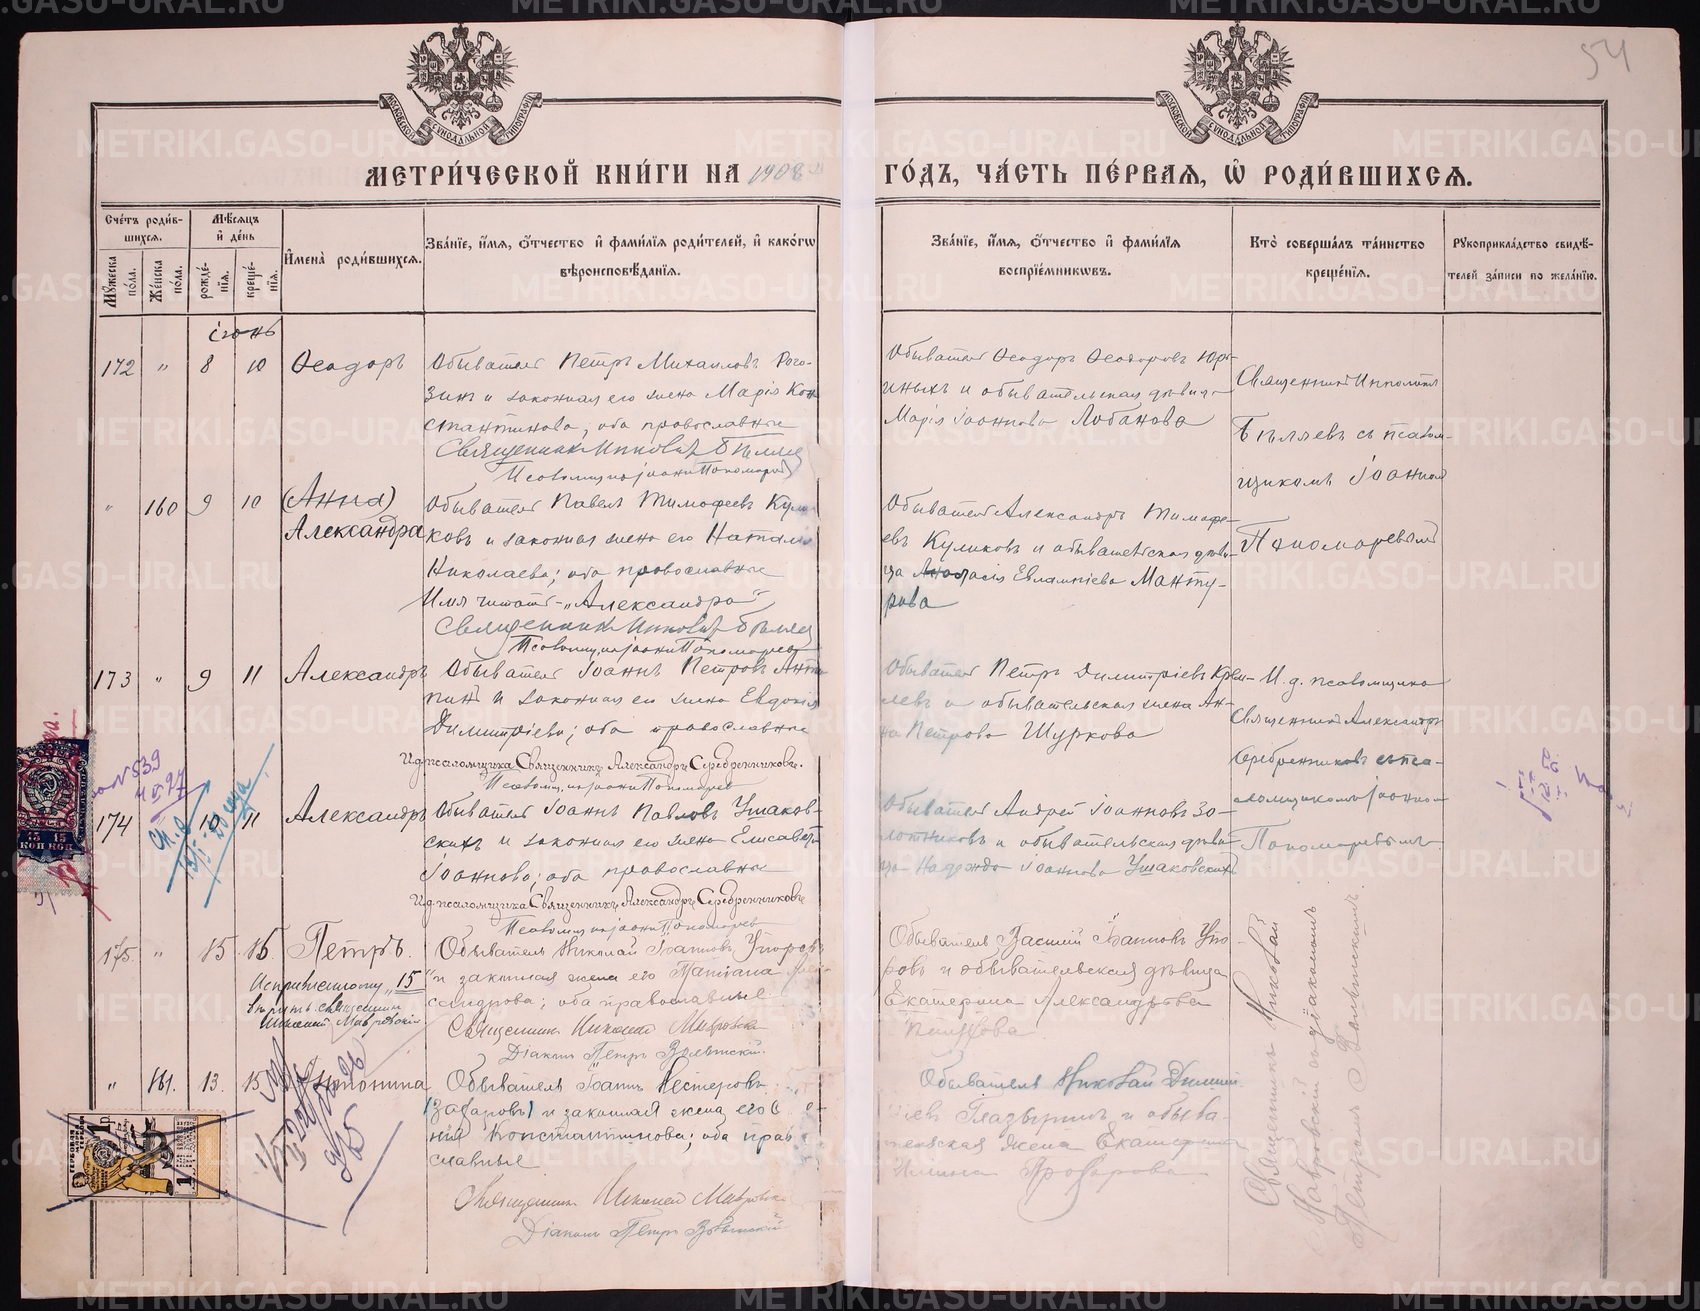 54
МОСКОВСКОЙ СѴНОДАЛЬНОЙ ТИПОГРАФІИ
МОСКОВСКОЙ СѴНОДАЛЬНОЙ ТИПОГРАФІИ
МЕТРИ́ЧЕСКОЙ КНИ́ГИ НА 1908 ГО́ДЪ, ЧА́СТЬ ПЕ́РВАЯ, Ѡ РОДИ́ВШИХСЯ.
Сче́тъ роди́в-
шихся.
Мѣ́сяцъ
и҆ де́нь
Мꙋ́жеска по́ла.
Же́нска по́ла.
рожде́нїя.
креще́нїя.
И҆мена̀ роди́вшихся.
Зва́нїе, и҆́мя, ѻ҆́тчество и҆ фами́лїя роди́телей, и҆ како́гѡ
вѣроисповѣ́данїя.
Зва́нїе, и҆́мя, ѻ҆́тчество и҆ фами́лїя
воспрїе́мникѡвъ.
Кто̀ соверша́лъ та́инство
креще́нїя.
Рꙋкоприкла́дство свидѣ́-
телей за́писи по жела́нїю.
іюнь
172 " 8 10 Ѳеодоръ
Обыватель Петръ Михаиловъ Рого-
зинъ и законная его жена Марія Кон
стантинова; оба православные
Священникъ Ипполитъ Бѣляев
Псаломщикъ Іоаннъ Пономарев
Обыватель Ѳеодоръ Ѳеодоровъ Юрь-
иныхъ и обывательская дѣвица
Марія Іоаннова Лобанова
Священникъ Ипполитъ
Бѣляевъ съ псалом-
щикомъ Іоанном
Пономаревымъ
" 160 9 10 (Анна)
Александра
Обыватель Павелъ Тимофеевъ Кули
ковъ и законная жена его Наталія
Николаева; оба православные
Имя читать "Александра"
Священникъ Ипполитъ Бѣляев
Псаломщикъ Іоаннъ Пономарев
Обыватель Александръ Тимофе-
евъ Куликовъ и обывательская дѣви-
ца Анастасія Евлампіева Манту-
рова
173 " 9 11 Александръ
Обыватель Іоаннъ Петровъ Анти
пинъ и законная его жена Евдокія
Димитріева; оба православные
И.д. псаломщика Священникъ Александръ Серебренниковъ.
Псаломщикъ Іоаннъ Пономарев
Обыватель Петръ Димитріевъ Крем-
левъ и обывательская жена Ан-
на Петрова Шуркова
И. д. псаломщика
Священникъ Александръ
Серебренниковъ съ пса-
ломщикомъ Іоанном
Пономаревымъ
№ 539
174 10 11 Александръ
Обыватель Іоаннъ Павловъ Ушаков-
скихъ и законная его жена Елисавета
Іоаннова; оба православные
И.д. псаломщика Священникъ Александръ Серебренниковъ
Псаломщикъ Іоаннъ Пономарев
Обыватель Андрей Іоанновъ Зо-
лотниковъ и обывательская дѣви-
ца Надежда Іоаннова Ушаковскихъ
15 15
КОП КОП
175. " 15 16. Петръ.
Исправленному "15
вѣрить священникъ
Николай Мавровскій
Обыватель Николай Іоанновъ Упоровъ
и законная жена его Татіана Алек-
сандрова; оба православные
Священникъ Николай Мавровскій
Діаконъ Петръ
Обыватель Василій Іоанновъ Упо-
ровъ и обывательская дѣвица
Екатерина Александрова
Священникъ Николай
Мавровскій съ діакономъ
Петромъ
" 161. 13. 15 Антонина
Обыватель Іоаннъ Нестеровъ
(Захаровъ) и законная жена его
Константинова; оба право
славные
Священникъ Николай Мавровскій
Діаконъ Петръ
Обыватель Николай Димит
ріевъ Гладышевъ и обыва-
тельская жена Екатерина
ГЕРБОВАЯ МАРКА
1 Р.
METRIKI.GASO-URAL.RU